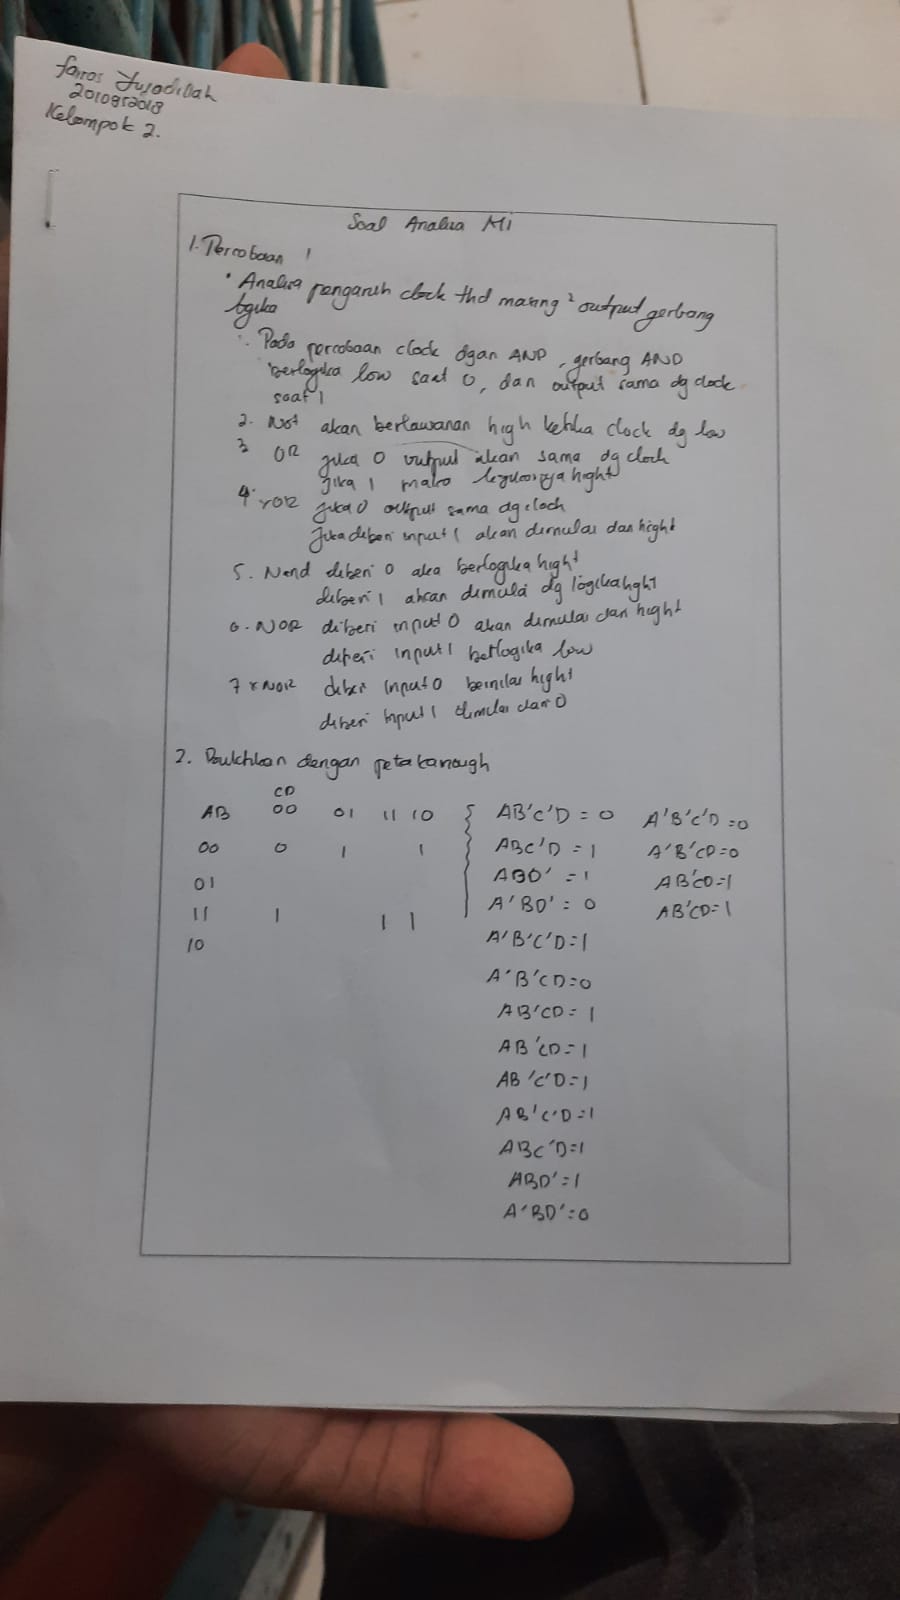 fairos
Kelompok 2.
Soal Analisa M1
1. Percobaan 1
• Analisa pengaruh clock thd masing² output gerbang
logika
1. Pada percobaan clock dgan AND, gerbang AND
berlogika low saat 0, dan output sama dg clock
saat 1
2. Not akan berlawanan high ketika clock dg low
3 OR jika 0 output akan sama dg clock
jika 1 maka hight
4. XOR jika 0 output sama dg clock
Jika diberi input 1 akan dimulai dari hight
5. Nand diberi 0 aka berlogika hight
diberi 1 ahran dimulai dg logika hght
6. NOR diberi input 0 akan dimulai dari hight
diberi input 1 berlogika low
7 XNOR diberi input 0 bernilai hight
diberi input 1 dimulai dari 0
2. dengan peta karnough
CD
AB 00 01 11 10 AB'C'D = 0 A'B'C'D =0
00 0 1 1 ABC'D = 1 A'B'CD=0
01 ABD' = 1 AB'CD=1
11 1 1 1 A'BD' = 0 AB'CD=1
10 A'B'C'D=1
A'B'CD=0
AB'CD = 1
AB'CD=1
AB'C'D=1
AB'C'D=1
ABC'D=1
ABD'=1
A'BD'=0